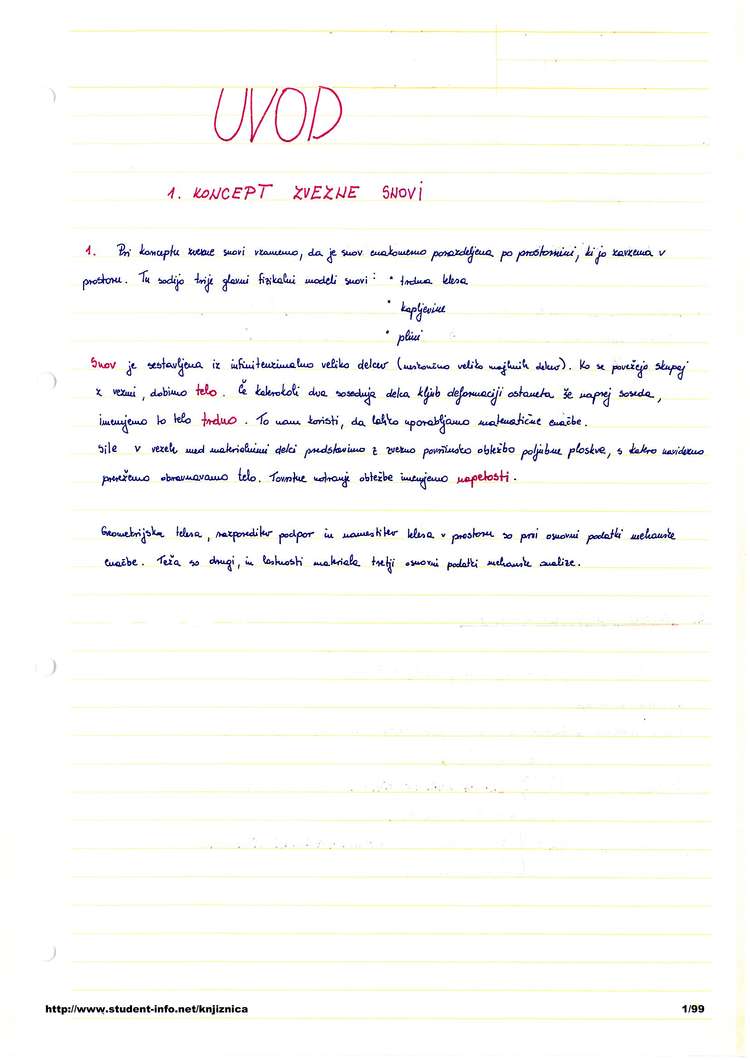 UVOD
1. KONCEPT ZVEZNE SNOVI
1. Pri konceptu zvezne snovi vzamemo, da je snov enakomerno porazdeljena po prostornini, ki jo zavzema v
prostoru. Tu sodijo trije glavni fizikalni modeli snovi: • trdna telesa
• kapljevine
• plini
Snov je sestavljena iz infinitenzimalno veliko delcev (neskončno veliko majhnih delcev). Ko se povežejo skupaj
z vezmi, dobimo telo. Če kakrokoli dva soseduja delca kljub deformaciji ostaneta še naprej soseda,
imenujemo to telo trdno. To nam koristi, da lahko uporabljamo matematične enačbe.
Sile v vezeh med materialnimi delci predstavimo z zvezno površinsko obtežbo poljubne ploskve, s katero navidezno
prerežemo obravnavano telo. Tovrstne notranje obtežbe imenujemo napetosti.
Geometrijska telesa, razporeditev podpor in namestitev telesa v prostoru so prvi osnovni podatki mehanske
enačbe. Teža so drugi, in lastnosti materiala tretji osnovni podatki mehanske analize.
http://www.student-info.net/knjiznica
1/99